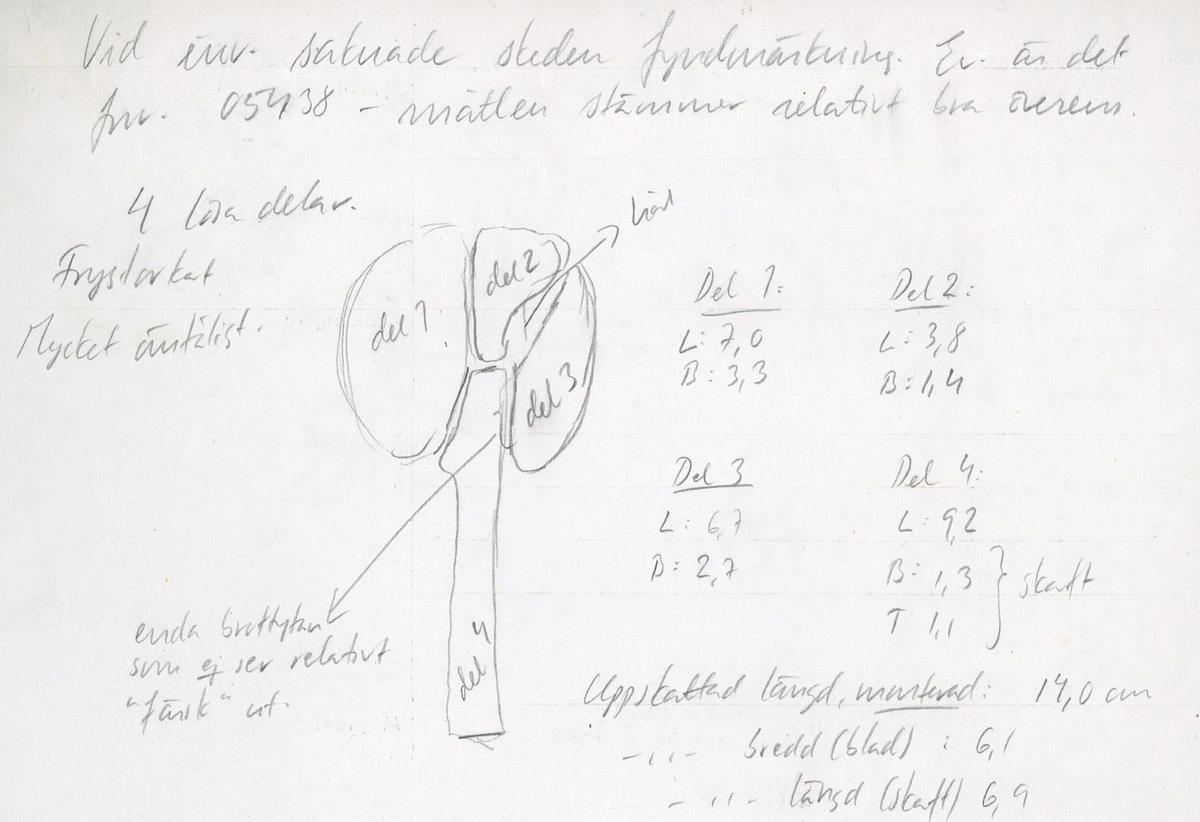 Vid inv. saknade skeden fyndmärkning. Ev. är det
fnr. 05438 – måtten stämmer relativt bra överens.
4 lösa delar.
Frystorkat
Mycket ömtålist.
hål
del 1
del 2
del 3
del 4
Del 1:
L: 7,0
B: 3,3
Del 2:
L: 3,8
B: 1,4
Del 3
L: 6,7
B: 2,7
Del 4:
L: 9,2
B: 1,3
T 1,1
skaft
enda brottytan
som ej ser relativt
"färsk" ut.
Uppskattad längd, monterad: 14,0 cm
-"- bredd (blad) : 6,1
-"- längd (skaft) 6,9